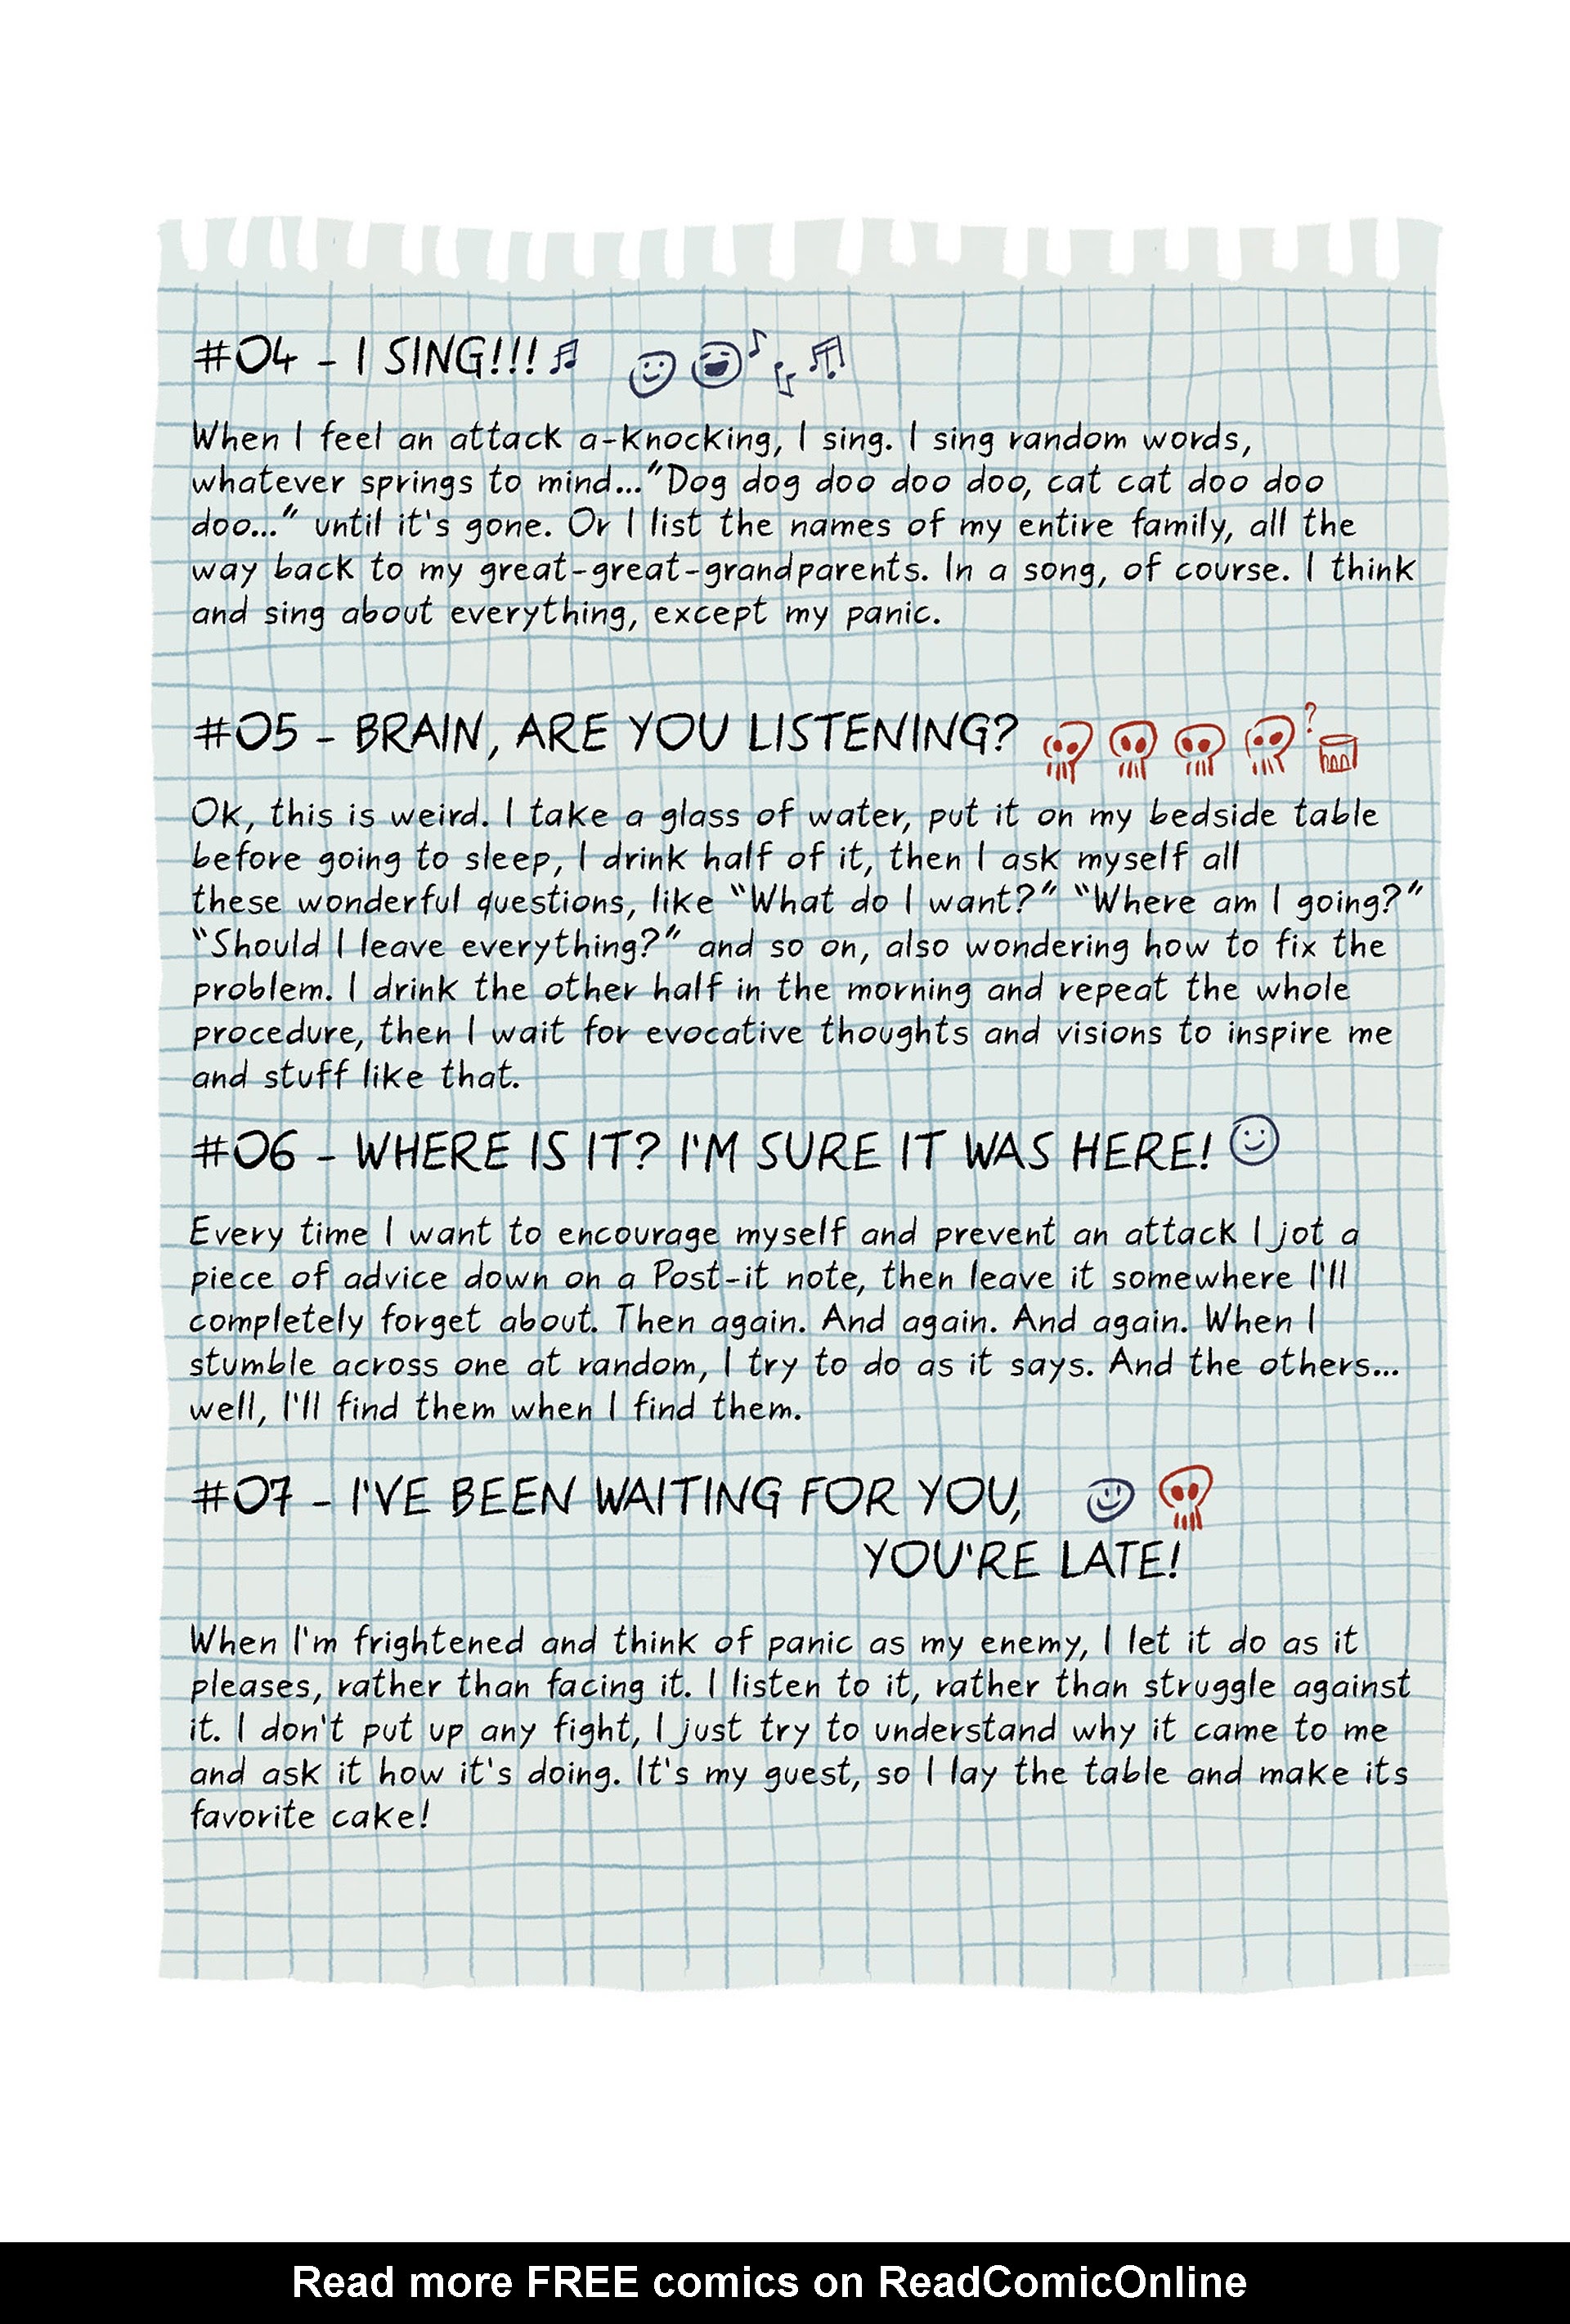 #04 - I SING!!!
When I feel an attack a-knocking, I sing. I sing random words,
whatever springs to mind..."Dog dog doo doo doo, cat cat doo doo
doo..." until it's gone. Or I list the names of my entire family, all the
way back to my great-great-grandparents. In a song, of course. I think
and sing about everything, except my panic.
#05 - BRAIN, ARE YOU LISTENING?
?
Ok, this is weird. I take a glass of water, put it on my bedside table
before going to sleep, I drink half of it, then I ask myself all
these wonderful questions, like "What do I want?" "Where am I going?"
"Should I leave everything?" and so on, also wondering how to fix the
problem. I drink the other half in the morning and repeat the whole
procedure, then I wait for evocative thoughts and visions to inspire me
and stuff like that.
#06 - WHERE IS IT? I'M SURE IT WAS HERE!
Every time I want to encourage myself and prevent an attack I jot a
piece of advice down on a Post-it note, then leave it somewhere I'll
completely forget about. Then again. And again. And again. When I
stumble across one at random, I try to do as it says. And the others...
well, I'll find them when I find them.
#07 - I'VE BEEN WAITING FOR YOU,
YOU'RE LATE!
When I'm frightened and think of panic as my enemy, I let it do as it
pleases, rather than facing it. I listen to it, rather than struggle against
it. I don't put up any fight, I just try to understand why it came to me
and ask it how it's doing. It's my guest, so I lay the table and make its
favorite cake!
Read more FREE comics on ReadComicOnline